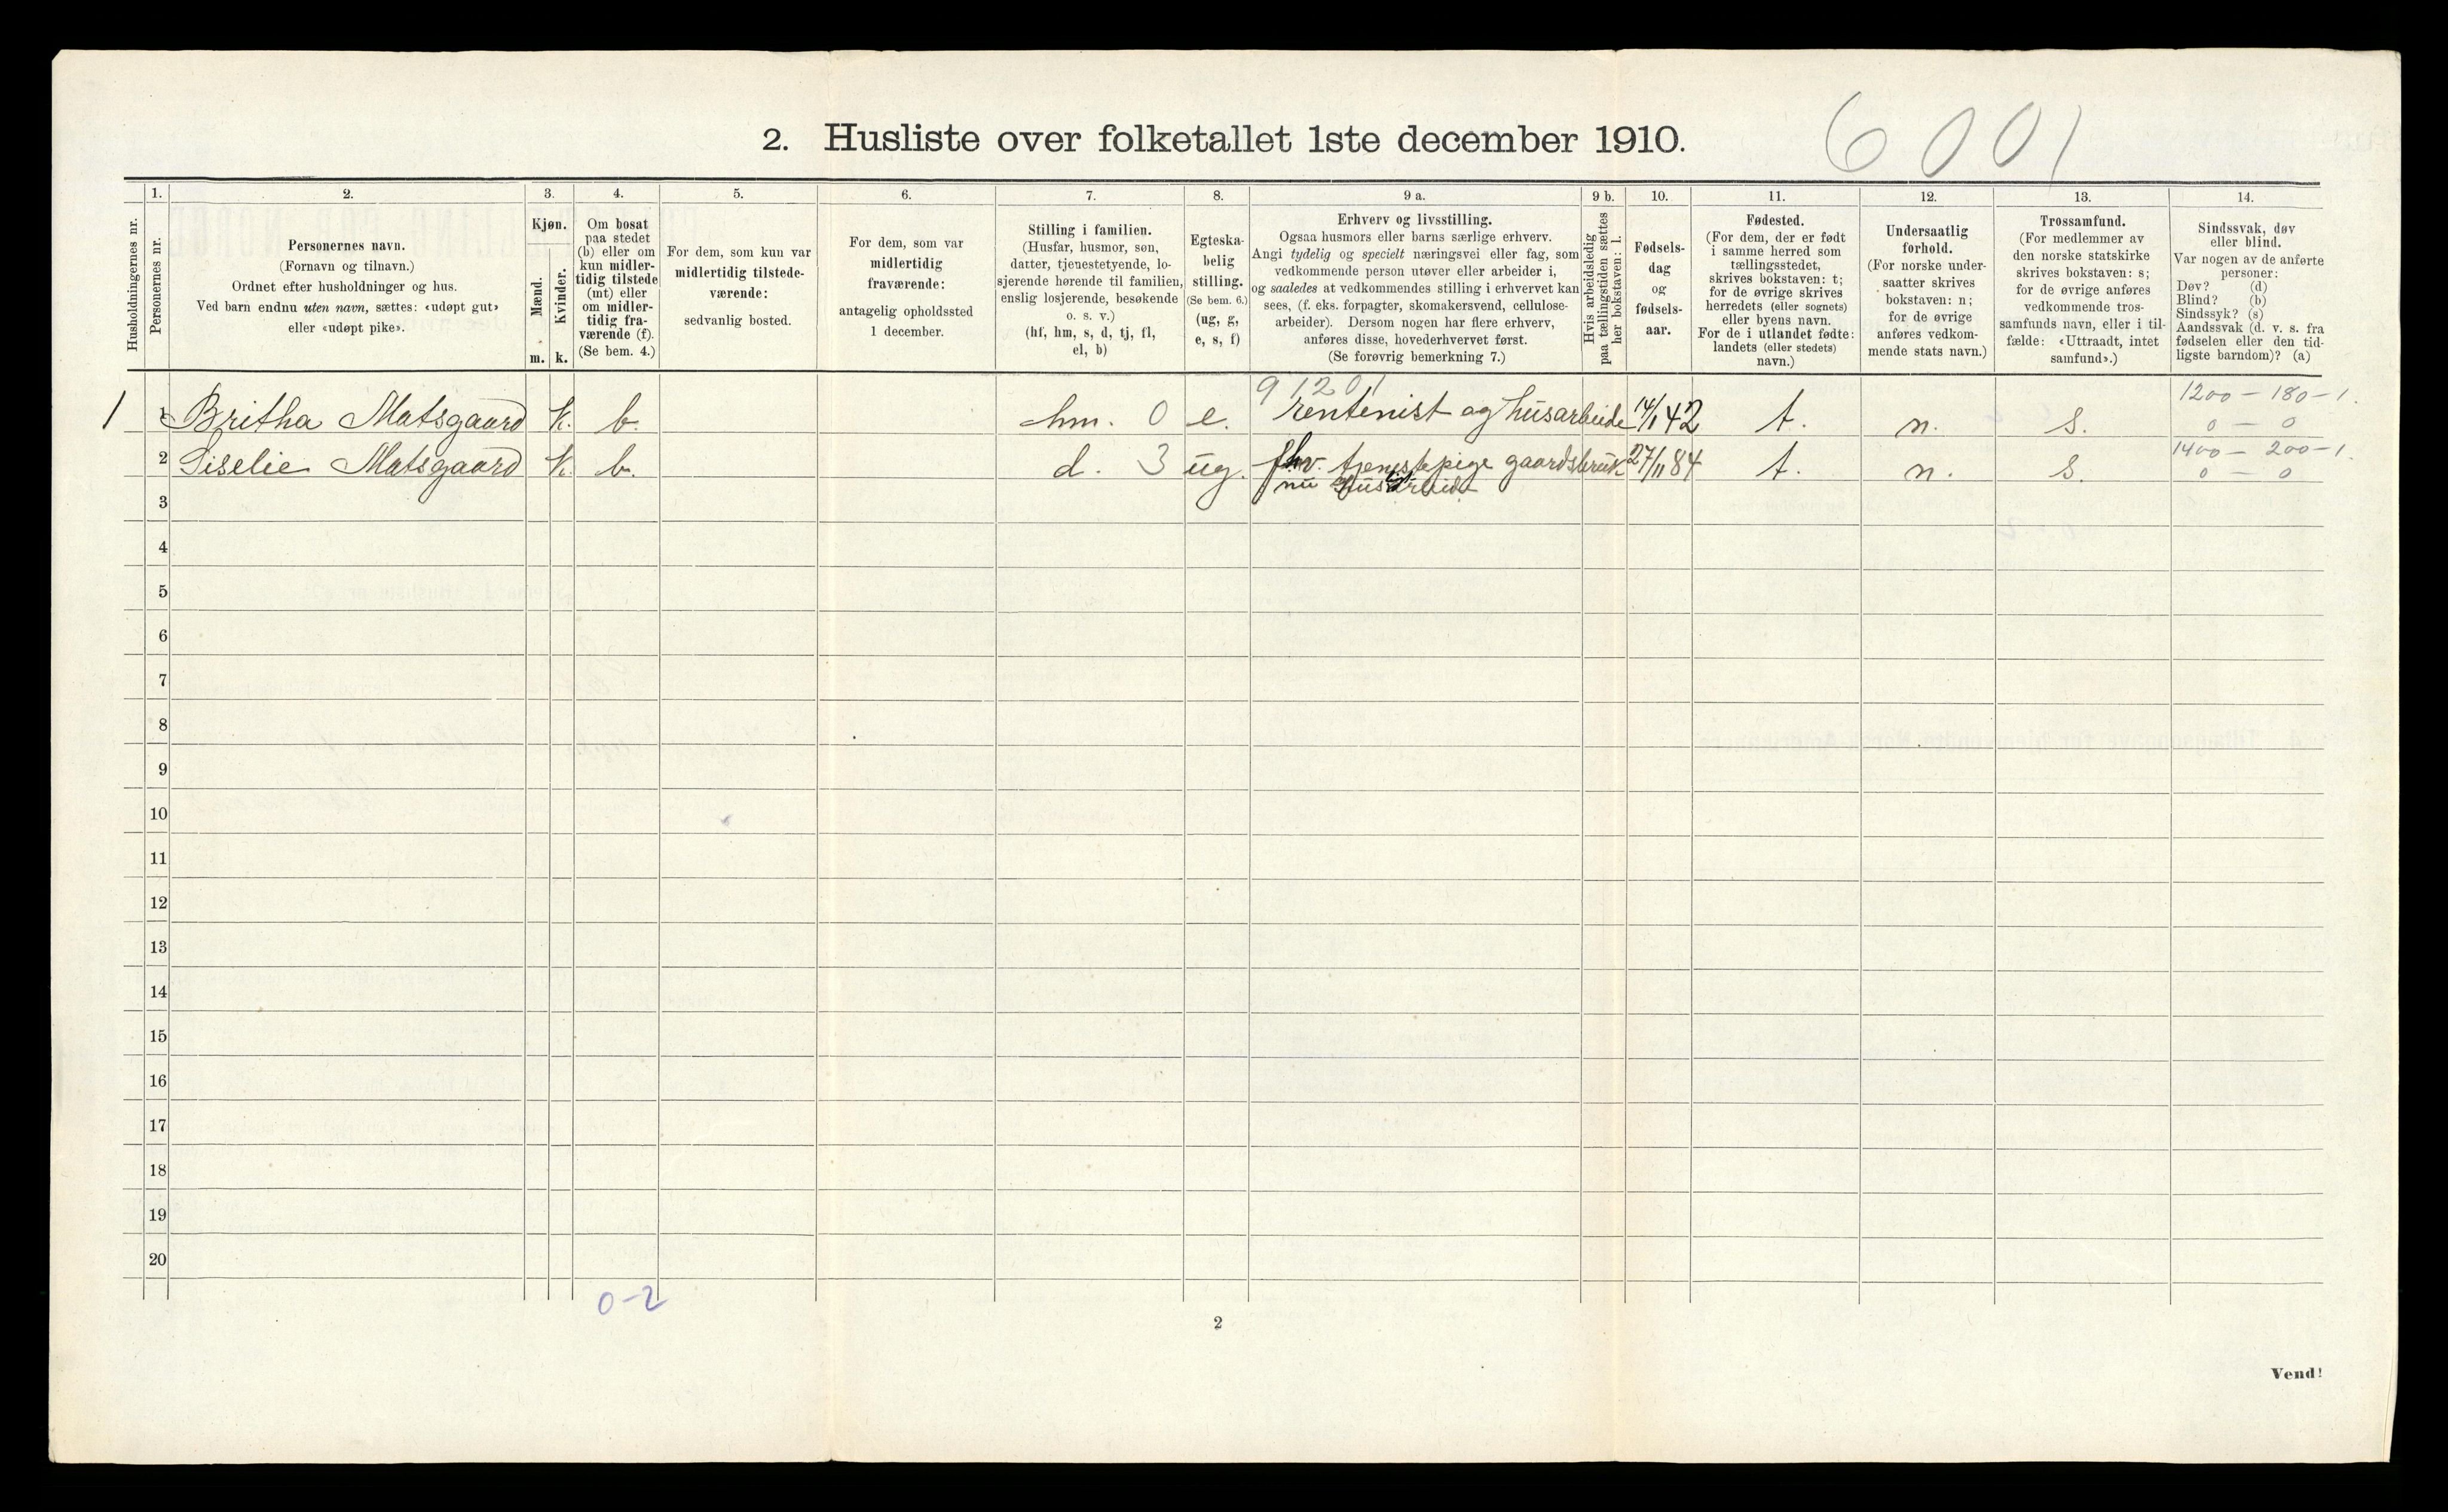 2. Husliste over folketallet 1ste december 1910.
6001
Husholdningernes nr.
1.
Personernes nr.
2.
Personernes navn.
(Fornavn og tilnavn.)
Ordnet efter husholdninger og hus.
Ved barn endnu uten navn, sættes: «udøpt gut»
eller «udøpt pike».
3.
Kjøn.
Mænd.
Kvinder.
m. k.
4.
Om bosat
paa stedet
(b) eller om
kun midler-
tidig tilstede
(mt) eller
om midler-
tidig fra-
værende (f).
(Se bem. 4.)
5.
For dem, som kun var
midlertidig tilstede-
værende:
sedvanlig bosted.
6.
For dem, som var
midlertidig
fraværende:
antagelig opholdssted
1 december.
7.
Stilling i familien.
(Husfar, husmor, søn,
datter, tjenestetyende, lo-
sjerende hørende til familien,
enslig losjerende, besøkende
o. s. v.)
(hf, hm, s, d, tj, fl,
el, b)
8.
Egteska-
belig
stilling.
(Se bem. 6.)
(ug, g,
e, s, f)
9 a.
Erhverv og livsstilling.
Ogsaa husmors eller barns særlige erhverv.
Angi tydelig og specielt næringsvei eller fag, som
vedkommende person utøver eller arbeider i,
og saaledes at vedkommendes stilling i erhvervet kan
sees, (f. eks. forpagter, skomakersvend, cellulose-
arbeider). Dersom nogen har flere erhverv,
anføres disse, hovederhvervet først.
(Se forøvrig bemerkning 7.)
9 b.
Hvis arbeidsledig
paa tællingstiden sættes
her bokstaven: l.
10.
Fødsels-
dag
og
fødsels-
aar.
11.
Fødested.
(For dem, der er født
i samme herred som
tællingsstedet,
skrives bokstaven: t;
for de øvrige skrives
herredets (eller sognets)
eller byens navn.
For de i utlandet fødte:
landets (eller stedets)
navn.)
12.
Undersaatlig
forhold.
(For norske under-
saatter skrives
bokstaven: n;
for de øvrige
anføres vedkom-
mende stats navn.)
13.
Trossamfund.
(For medlemmer av
den norske statskirke
skrives bokstaven: s;
for de øvrige anføres
vedkommende tros-
samfunds navn, eller i til-
fælde: «Uttraadt, intet
samfund».)
14.
Sindssvak, døv
eller blind.
Var nogen av de anførte
personer:
Døv? (d)
Blind? (b)
Sindssyk? (s)
Aandssvak (d. v. s. fra
fødselen eller den tid-
ligste barndom)? (a)
91201
1200 – 180 – 1.
1 1 Britha Matsgaard k. b. hm. 0 e. rentenist og husarbeide 14/1 42 t. n. s. 0 – 0
1400 – 200 – 1.
2 Siselie Matsgaard k. b. d. 3 ug. fhv. tjenestepige gaardsbruk 27/11 84 t. n. s. 0 – 0
nu husarbeide
3
4
5
6
7
8
9
10
11
12
13
14
15
16
17
18
19
20
0-2
2
Vend!